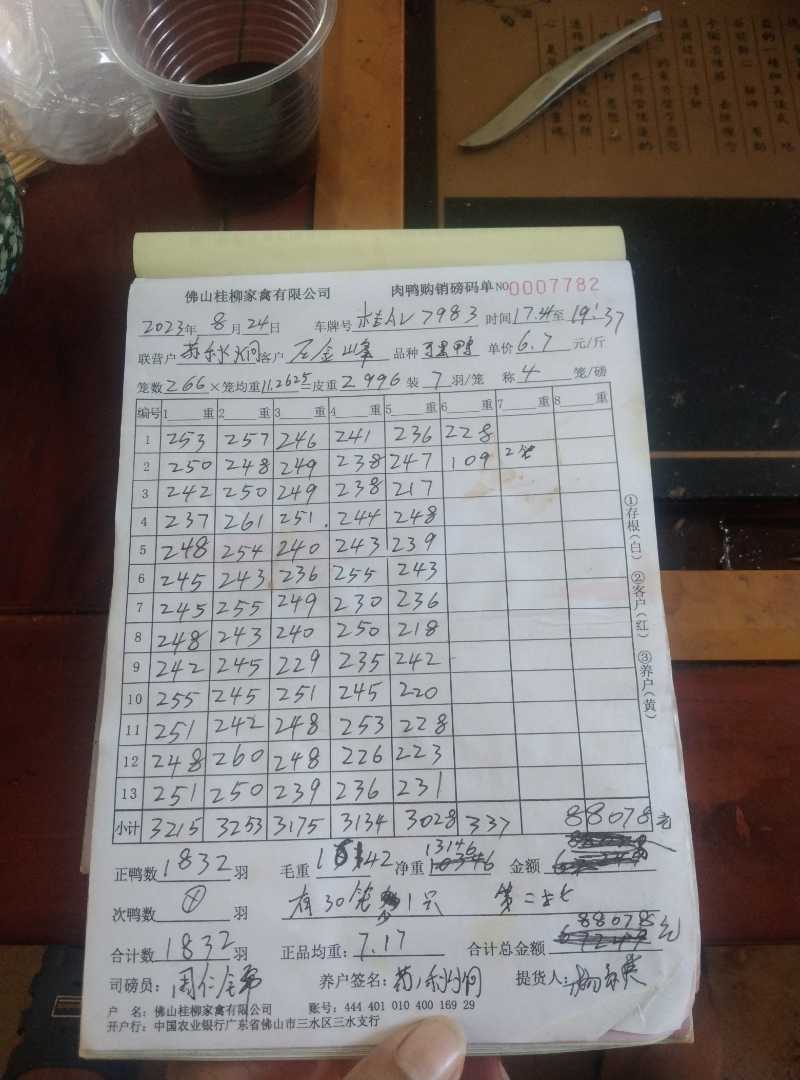 佛山桂柳家禽有限公司 肉鸭购销磅码单 NO 0007782
2023年 8月24日 车牌号 桂AL7983 时间17.41至19:37
联营户 客户 石金峰 品种 黑鸭 单价6.7元/斤
笼数266×笼均重11.2625=皮重2996 装7羽/笼 称4笼/磅
编号 1 重 2 重 3 重 4 重 5 重 6 重 7 重 8 重
1 253 257 246 241 236 228
2 250 248 249 238 247 109 2笼
3 242 250 249 238 217
4 237 261 251 244 248
5 248 254 240 243 239
6 245 243 236 255 243
7 245 255 249 230 236
8 248 243 240 250 218
9 242 245 229 235 242
10 255 245 251 245 220
11 251 242 248 253 228
12 248 260 248 226 223
13 251 250 239 236 231
小计 3215 3253 3175 3134 3028 337 88078元
正鸭数1832羽 毛重16142 净重13146 金额
次鸭数 羽 有30笼少1只 第二车
合计数1832羽 正品均重:7.17 合计总金额 88078元
司磅员: 养户签名: 提货人:
户 名: 佛山桂柳家禽有限公司 账号: 444 401 010 400 169 29
开户行: 中国农业银行广东省佛山市三水区三水支行
①存根(白) ②客户(红) ③养户(黄)